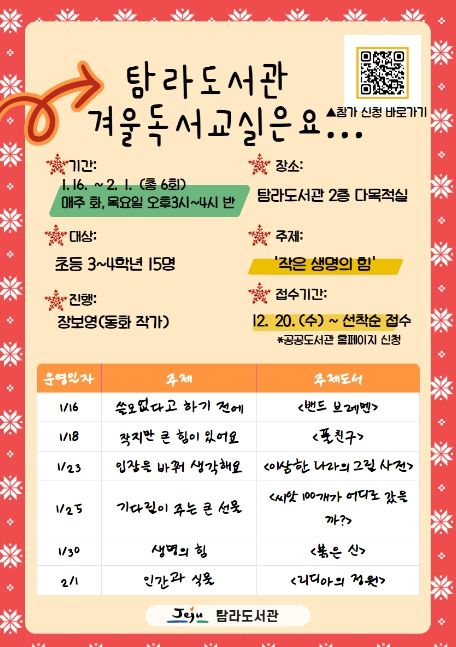 탐라도서관
겨울독서교실은요...
▲참가 신청 바로가기
기간:
1.16. ~ 2. 1. (총 6회)
매주 화, 목요일 오후3시~4시 반
장소:
탐라도서관 2층 다목적실
대상:
초등 3~4학년 15명
주제:
'작은 생명의 힘'
진행:
장보영(동화 작가)
접수기간:
12. 20. (수) ~ 선착순 접수
*공공도서관 홈페이지 신청
운영일자 주제 주제도서
1/16 쓸모없다고 하기 전에 <밴드 브레멘>
1/18 작지만 큰 힘이 있어요 <풀친구>
1/23 입장을 바꿔 생각해요 <이상한 나라의 그림 사전>
1/25 기다림이 주는 큰 선물 <씨앗 100개가 어디로 갔을
까?>
1/30 생명의 힘 <붉은 신>
2/1 인간과 식물 <리디아의 정원>
Jeju 탐라도서관